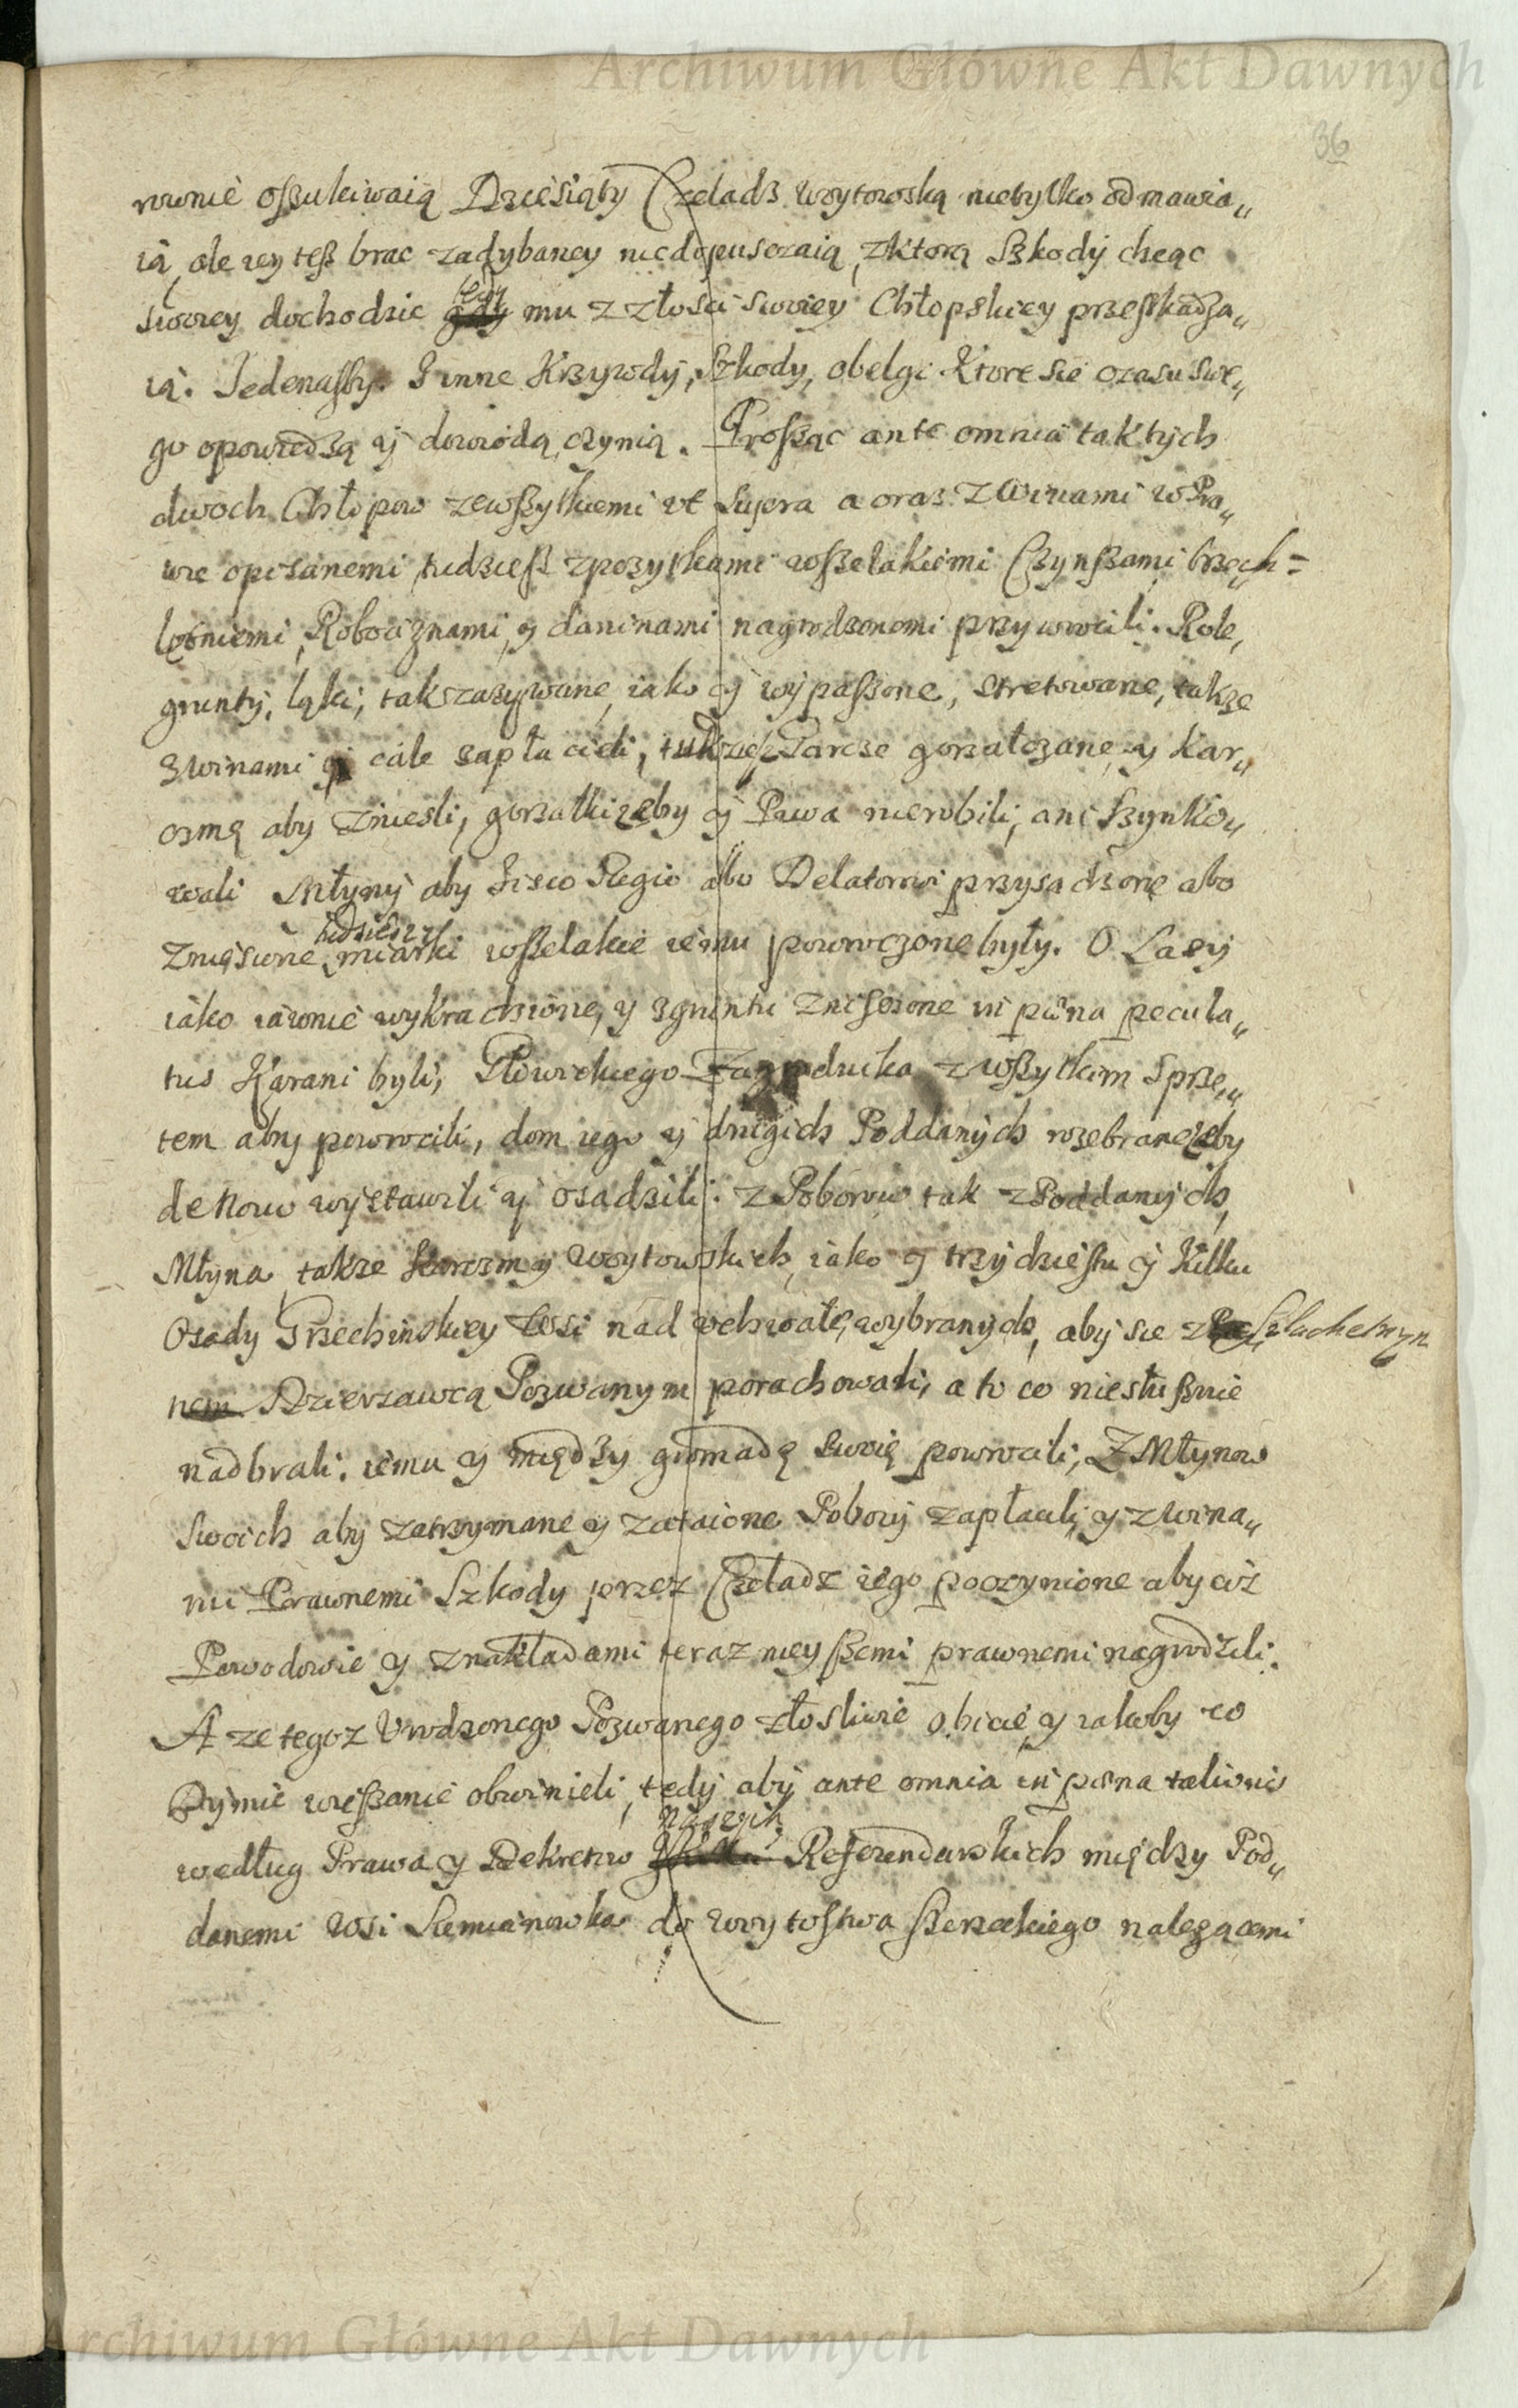 Archiwum Główne Akt Dawnych
36
rownie oszukiwaią Dziesiąty Czeladz woytowską nietylko odmawia„
ią, ale iey tesz brac zadybaney niedopuszczaią, zktorą Szkody chcąc
swoiey dochodzic mu z złosci swoiey Chłopskiey przeszkadza„
ią. Jedenasty. I inne Krzywdy, Szkody, obelgi Ktore sie czasu swe„
go opowiedzą y dowodą czynią. Prosząc ante omnia taktych
dwoch Chłopow zewszytkiemi vt supra a oraz zwinami wPra„
wie opisanemi, tudziesz zpozytkami wszelakiemi Czynszami trzech=
letniemi, Robociznami, y daninami nagrodzonemi przywrocili. Role,
grunty, łąki, tak zazywane, iako y wypaszone, stretowane, takze
zwinami cale zapłacili, tudziesz Garce gorzałczane, y Kar„
czmę aby zniesli, gorzałki zeby y Piwa nierobili, ani Szynko„
wali Młyny aby Fisco Regio albo Delatorowi przysadzone abo
Zniesione, tudziesz miarki wszelakie iemu powroczone były. O Lasy
iako iawnie wykradzione, y zgruntu zniszczone in pœna pecula„
tus Karani byli, Zagrodnika zwszytkim Sprzę„
tem aby powrocili, dom iego y drugich Poddanych rozebrane zeby
de Nowo wystawili y osadzili. z Poborow tak zPoddanych,
Młyna takze Karczmy Woytowskich, iako y trzydziestu y kilku
Osady Grzechinskiey Wsi nad vchwałę wybranych, aby sie z Szlachetnym
nem Dzierzawcą Pozwanym porachowali, a to co niesłusznie
nadbrali. iemu y między gromadę swoię powrocili, Z Młynow
Swoich aby zatrzymane y zataione Pobory zapłacili y zwina„
mi Prawnemi Szkody przez Czeladz iego poczynione aby ciz
Powodowie y znakładami teraznieyszemi prawnemi nagrodzili.
A ze tegoz Vrodzonego Pozwanego złosliwie o bicie y iakoby co
Dymie wieszanie obwinieli, tedy aby ante omnia in pœna talionis
według Prawa y Dekretow Naszych Referendarskich między Pod„
danemi Wsi Siemianowka do woytostwa nalezącemi
Archiwum Główne Akt Dawnych